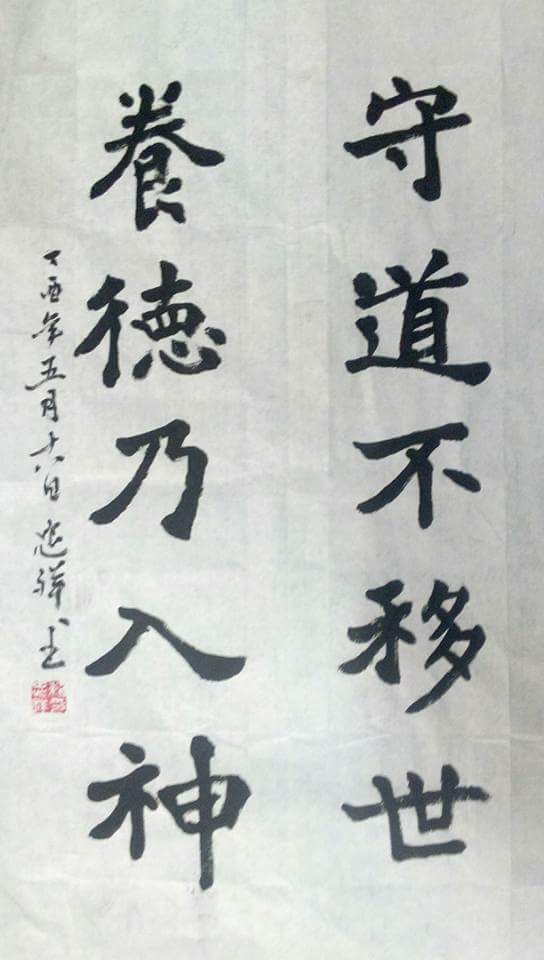 守道不移世
養德乃入神
丁酉年五月十八日忠祥書